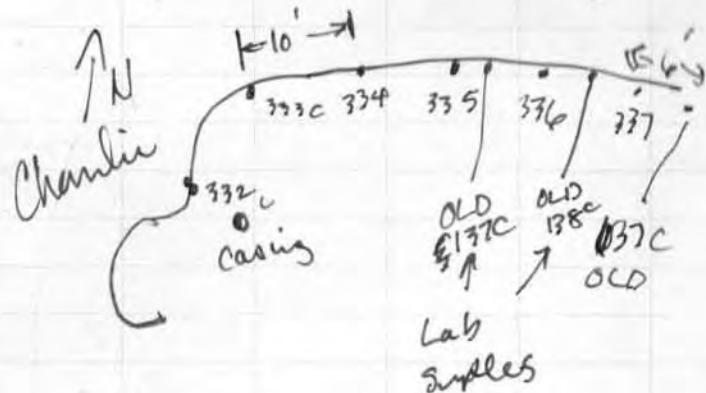 N
Charlie
10'
333c 334 335 336 337
6'
332c
casing
OLD
137C
OLD
138c
37C
OLD
Lab
Samples